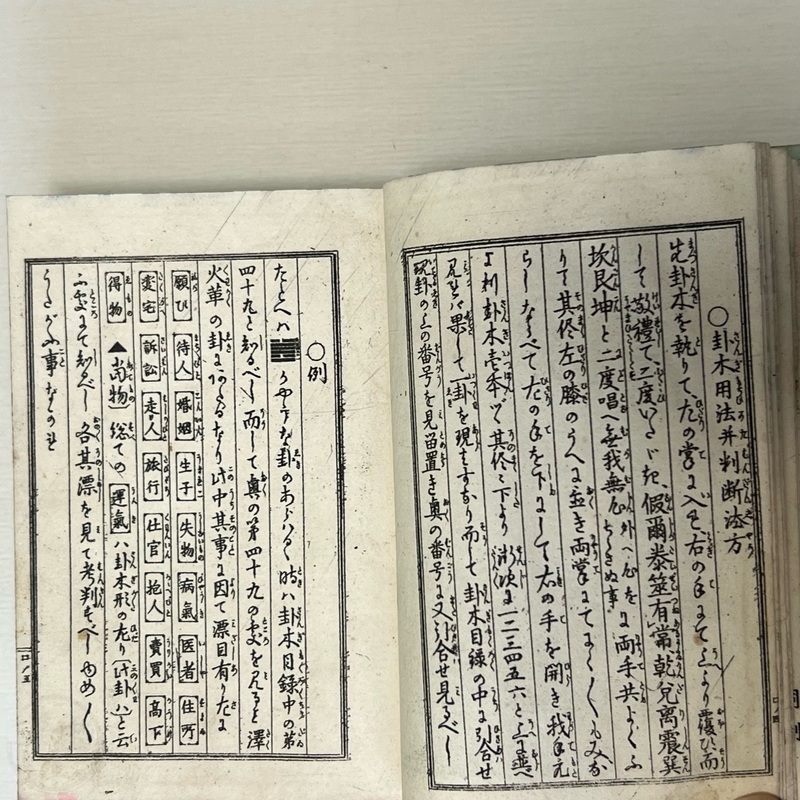 ○卦木用法并判断法方
先卦木を執りて、左の掌に入せ右の手にて上より覆ひ而
して敬禮て三度いたゞき、假爾泰筮有常乾兌离震巽
坎艮坤と二度唱へ無我無心外へ心をちらさぬ事両手共よくふ
りて其侭左の膝のうへに並き両掌にてよく〳〵もみな
らしならべて左の手を下にして右の手を開き我手元
より卦木壱本ヅヽ其侭に下より
見れば果して一卦を現はすなり而して卦木目録の中に引合せ
現卦の上の番号を見留置き奥の番号に又引合せ見るべし
○例
たとへハ かやうな卦のあらハるゝ時ハ卦木目録中の第
四十九と知るべし而して奥の第四十九の処を見ると澤
火革の卦にあたるなり此中其事に因て漂目有り左に
願ひ 待人 婚姻 生子 失物 病氣 医者 住所
変宅 訴訟 走人 旅行 仕官 抱人 賣買 高下
得物 ▲尚物総ての 運氣 ハ卦木形の左り 此卦ハ と云
ふ処にて知るべし各其漂を見て考判すべしゆめ〳〵
うたがふ事なかれ